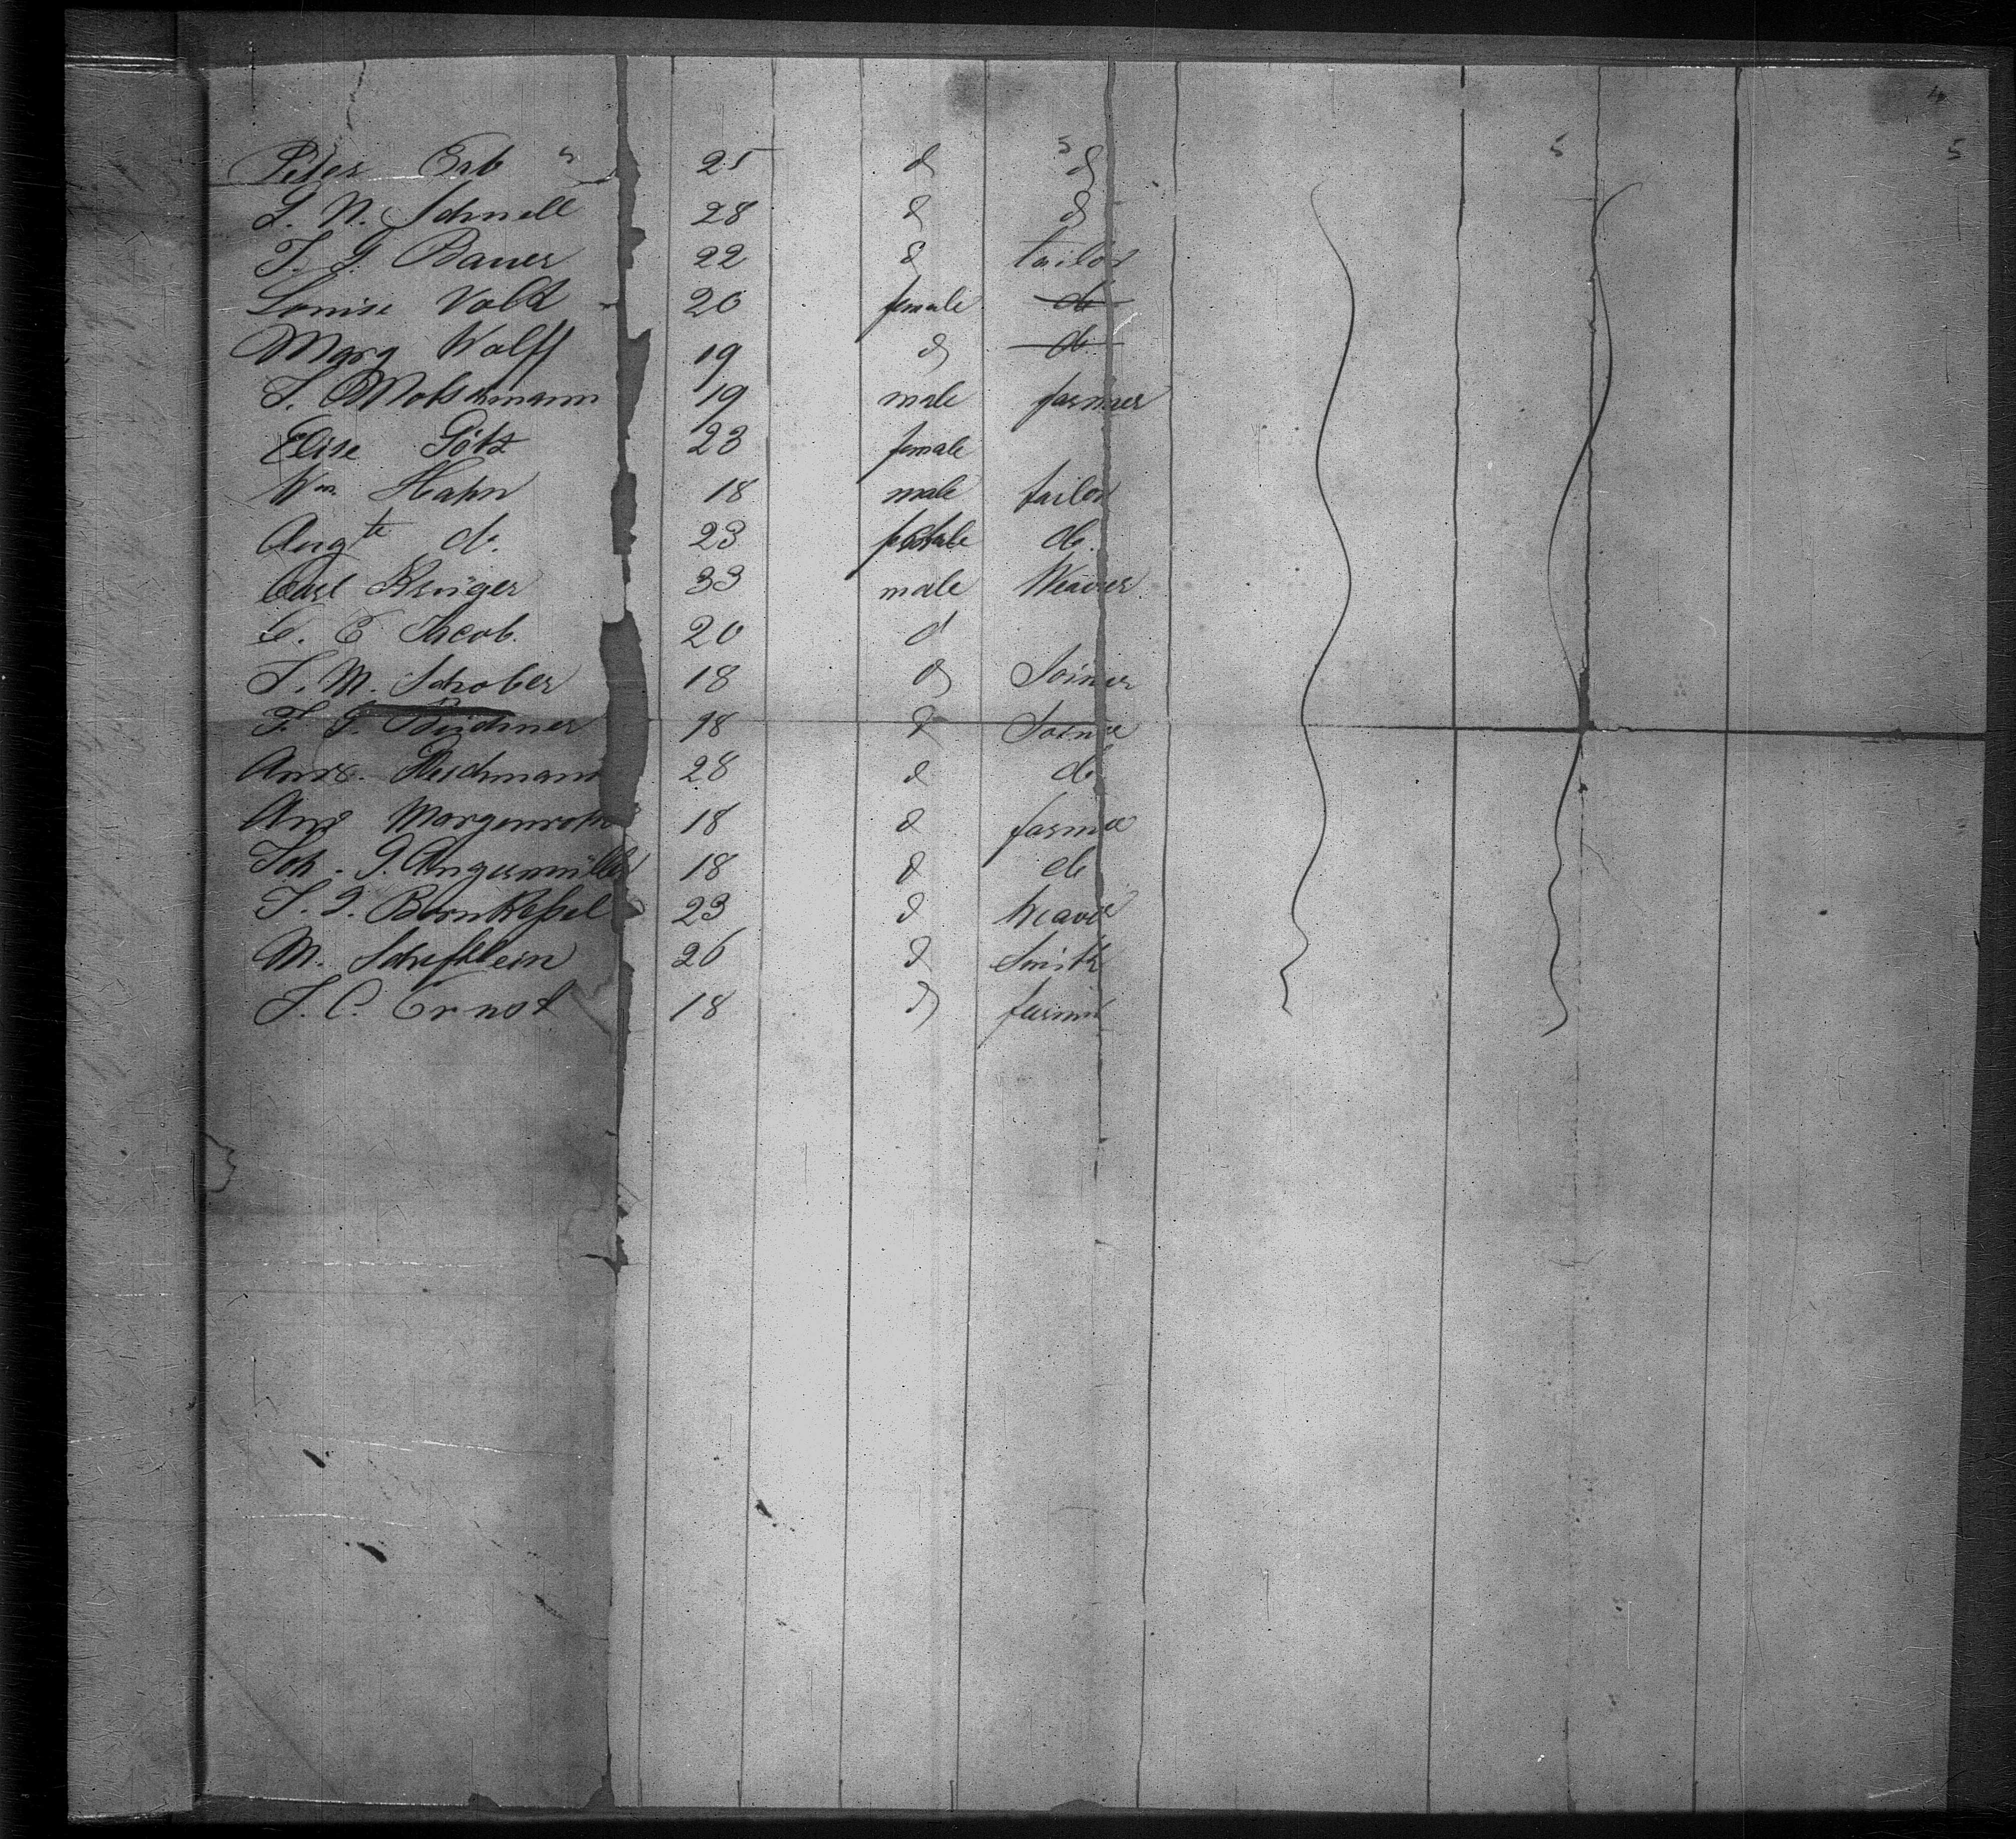 4
5 5 5
Peter Erb " 25 do do
L. N. Schnell 28 do do
J. G. Bauer 22 do tailor
Louise Volk 20 female do
Marg Wolff 19 do do
J. Motschmann 19 male farmer
Elise Götz 23 female
Wm Hahn 18 male tailor
Augte do. 23 female do.
Carl Krüger 33 male Weaver
C. E Jacob. 20 do
J. M. Schober 18 do Joiner
J. G. Büchner 18 do Joiner
Andr. 28 do do
And Morgenroth 18 do farmer
Joh. G. Angermüller 18 do do
J. G. Bornkessel 23 do Weaver
M. 26 do Smith
J. C. Ernst 18 do farmer